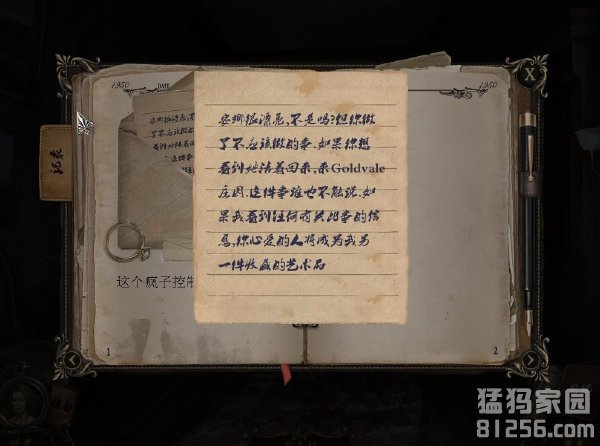 1950
DATE
1950
X
安珂很漂亮,不是吗?但你做
了不应该做的事.如果你想
看到她活着回来,来Goldvale
庄园.这件事谁也不能说.如
果我看到任何有关此事的信
息,你心爱的人将成为我另
一件收藏的艺术品
记录
这个疯子控制
1
2
猛犸家园
81256.com